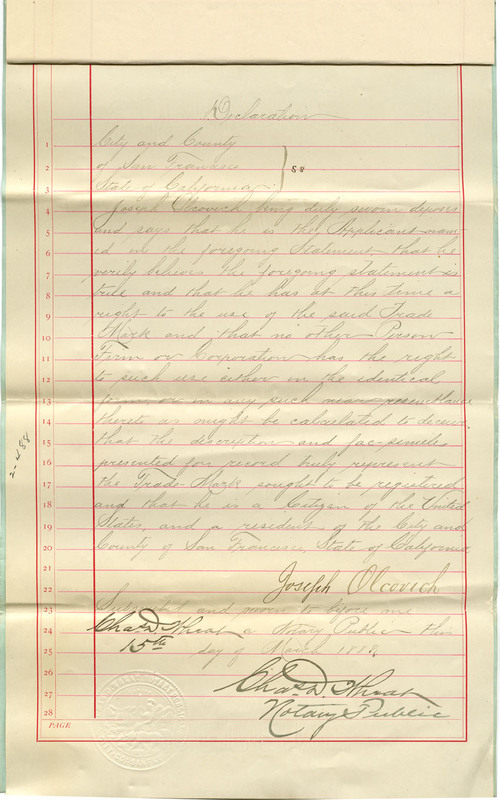 Declaration
1 City and County
2 of San Francisco } SS
3 State of California
4 Joseph Olcovich being duly sworn deposes
5 and says that he is the Applicant nam-
6 ed in the foregoing Statement that he
7 verily believes the foregoing statement is
8 true and that he has at this time a
9 right to the use of the said Trade
10 Mark and that no other Person
11 Firm or Corporation has the right
12 to such use either in the identical
13 form or in any such near resemblance
14 thereto as might be calculated to deceive
15 that the discription and fac-similes
16 presented for record truly represent
17 the Trade-Mark sought to be registered
18 and that he is a Citizen of the United
19 States, and a resident of the City and
20 County of San Francisco, State of California
21
22 Joseph Olcovich
23 Subscribed and sworn to before me
24 Chas. D. Wheat a Notary Public this
25 15th day of March 1888.
26
27 Chas. D. Wheat
28 Notary Public
PAGE
2-488